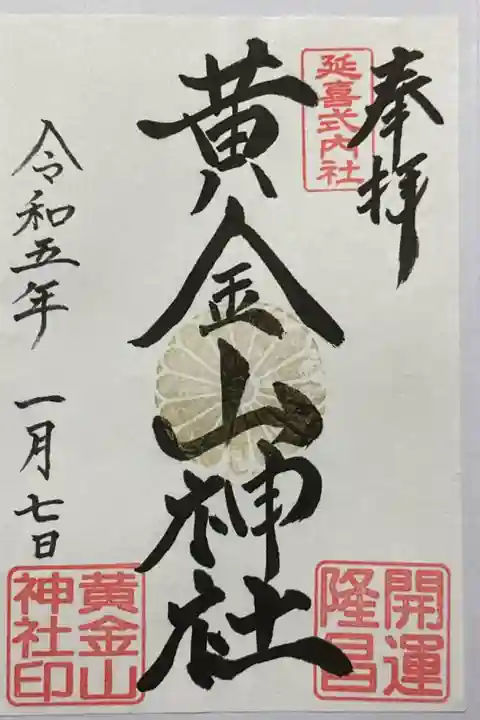 奉拝
延喜式内社
黄金山神社
開運
隆昌
令和五年 一月七日
黄金山
神社印